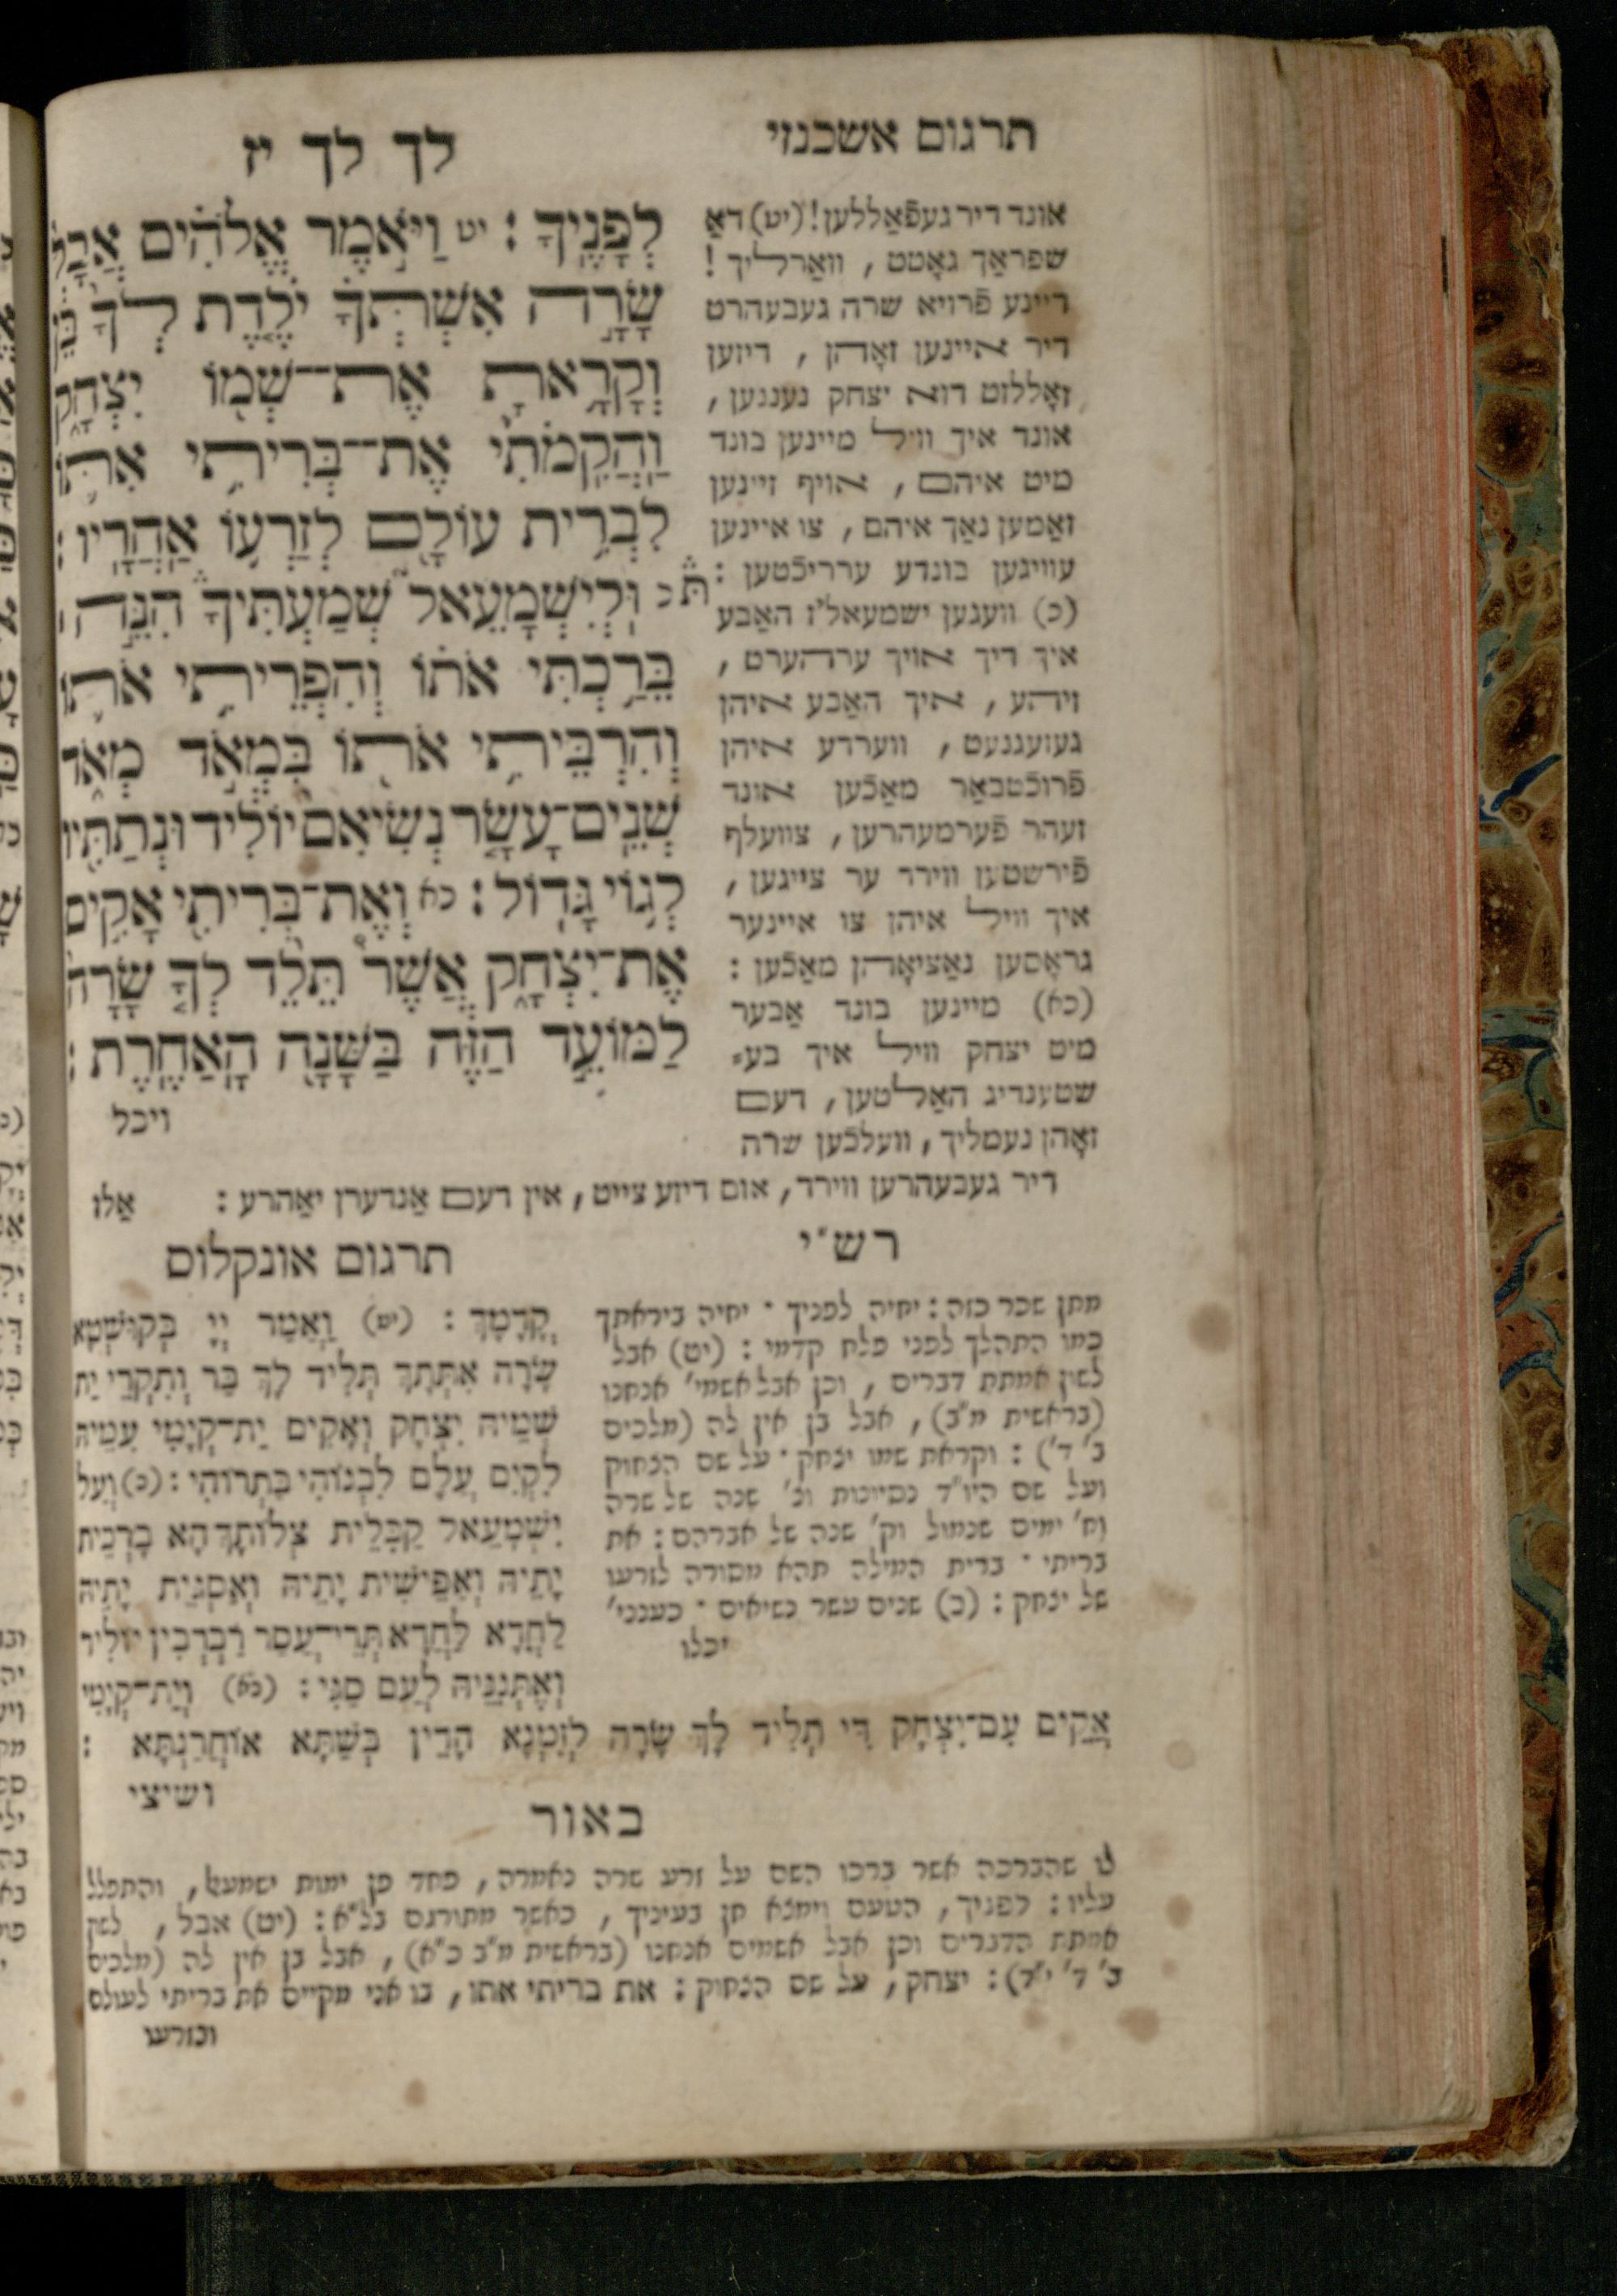 תרגום אשכנזי
לך לך יז
אונד דיר געפֿאַללען! (יט) דאַ
שפראַך גאָטט, וואַרליך!
דיינע פֿרויא שרה געבעהרט
דיר איינען זאָהן, דיזען
זאָללזט דוא יצחק נעננען,
אונד איך וויל מיינען בונד
מיט איהם, אויף זיינען
זאַמען נאַך איהם, צו איינען
עוויגען בונדע ערריכֿטען:
(כ) וועגען ישמעאל'ז האַבע
איך דיך אויך ערהערט,
זיהע, איך האַבע איהן
געזעגנעט, ווערדע איהן
פֿרוכֿטבאַר מאַכֿען אונד
זעהר פֿערמעהרען, צוועלף
פֿירשטען ווירד ער צייגען,
איך וויל איהן צו איינער
גראָסען נאַציאָהן מאַכֿען:
(כא) מיינען בונד אַבער
מיט יצחק וויל איך בע=
שטענדיג האַלטען, דעם
זאָהן נעמליך, וועלכֿען שרה
דיר געבעהרען ווירד, אום דיזע צייט, אין דעם אַנדערן יאַהרע:
אַלז
לְפָנֶיךָ: יט וַיֹּאמֶר אֱלֹהִים אֲבָל
שָׂרָה אִשְׁתְּךָ יֹלֶדֶת לְךָ בֵּן
וְקָרָאתָ אֶת־שְׁמוֹ יִצְחָק
וַהֲקִמֹתִי אֶת־בְּרִיתִי אִתּוֹ
לִבְרִית עוֹלָם לְזַרְעוֹ אַחֲרָיו:
כ וּלְיִשְׁמָעֵאל שְׁמַעְתִּיךָ הִנֵּה
בֵּרַכְתִּי אֹתוֹ וְהִפְרֵיתִי אֹתוֹ
וְהִרְבֵּיתִי אֹתוֹ בִּמְאֹד מְאֹד
שְׁנֵים־עָשָׂר נְשִׂיאִם יוֹלִיד וּנְתַתִּיו
לְגוֹי גָּדוֹל: כא וְאֶת־בְּרִיתִי אָקִים
אֶת־יִצְחָק אֲשֶׁר תֵּלֵד לְךָ שָׂרָה
לַמּוֹעֵד הַזֶּה בַּשָּׁנָה הָאַחֶרֶת:
ויכל
רש"י
מתן שכר כזה: יחיה לפניך · יחיה ביראתך
כמו התהלך לפני פלח קדמי: (יט) אבל
לשון אמתת דברים, וכן אבל אשמי' אנחנו
(בראשית מ"ב), אבל בן אין לה (מלכים
ב' ד'): וקראת שמו יצחק · על שם הצחוק
ועל שם היו"ד נסיונות וצ' שנה של שרה
וח' ימים שנמול וק' שנה של אברהם: את
בריתי · ברית המילה תהא מסורה לזרעו
של יצחק: (כ) שנים עשר נשיאים · כעננים'
יכלו
תרגום אונקלוס
קֳדָמָךְ: (יט) וַאֲמַר יְיָ בְּקוּשְׁטָא
שָׂרָה אִתְּתָךְ תְּלִיד לָךְ בַּר וְתִקְרֵי יַת
שְׁמֵיהּ יִצְחָק וְאָקֵים יַת־קְיָמִי עִמֵּיהּ
לִקְיַם עֲלָם לִבְנוֹהִי בַּתְרוֹהִי: (כ) וְעַל
יִשְׁמָעֵאל קַבֵּלִית צְלוֹתָךְ הָא בָרְכִית
יָתֵיהּ וְאַפֵּישִׁית יָתֵיהּ וְאַסְגֵּית יָתֵיהּ
לַחֲדָא לַחֲדָא תְּרֵי־עֲסַר רַבְרְבִין יוֹלִיד
וְאֶתְּנִנֵּיהּ לְעַם סַגִּי: (כא) וְיַת־קְיָמִי
אֲקֵים עִם־יִצְחָק דִּי תְלִיד לָךְ שָׂרָה לְזִמְנָא הָדֵין בְּשַׁתָּא אוֹחֲרַנְתָּא:
ושיצי
באור
שהברכה אשר ברכו השם על זרע שרה נאמרה, פחד פן ימות ישמעאל, והתפלל
עליו: לפניך, הטעם וימצא חן בעיניך, כאשר מתורגם בל"א: (יט) אבל, לשון
אמתת הדברים וכן אבל אשמים אנחנו (בראשית מ"ב כ"א), אבל בן אין לה (מלכים
ב' ד' י"ד): יצחק, על שם הצחוק: את בריתי אתו, בו אני מקיים את בריתי לעולם
ולזרעו